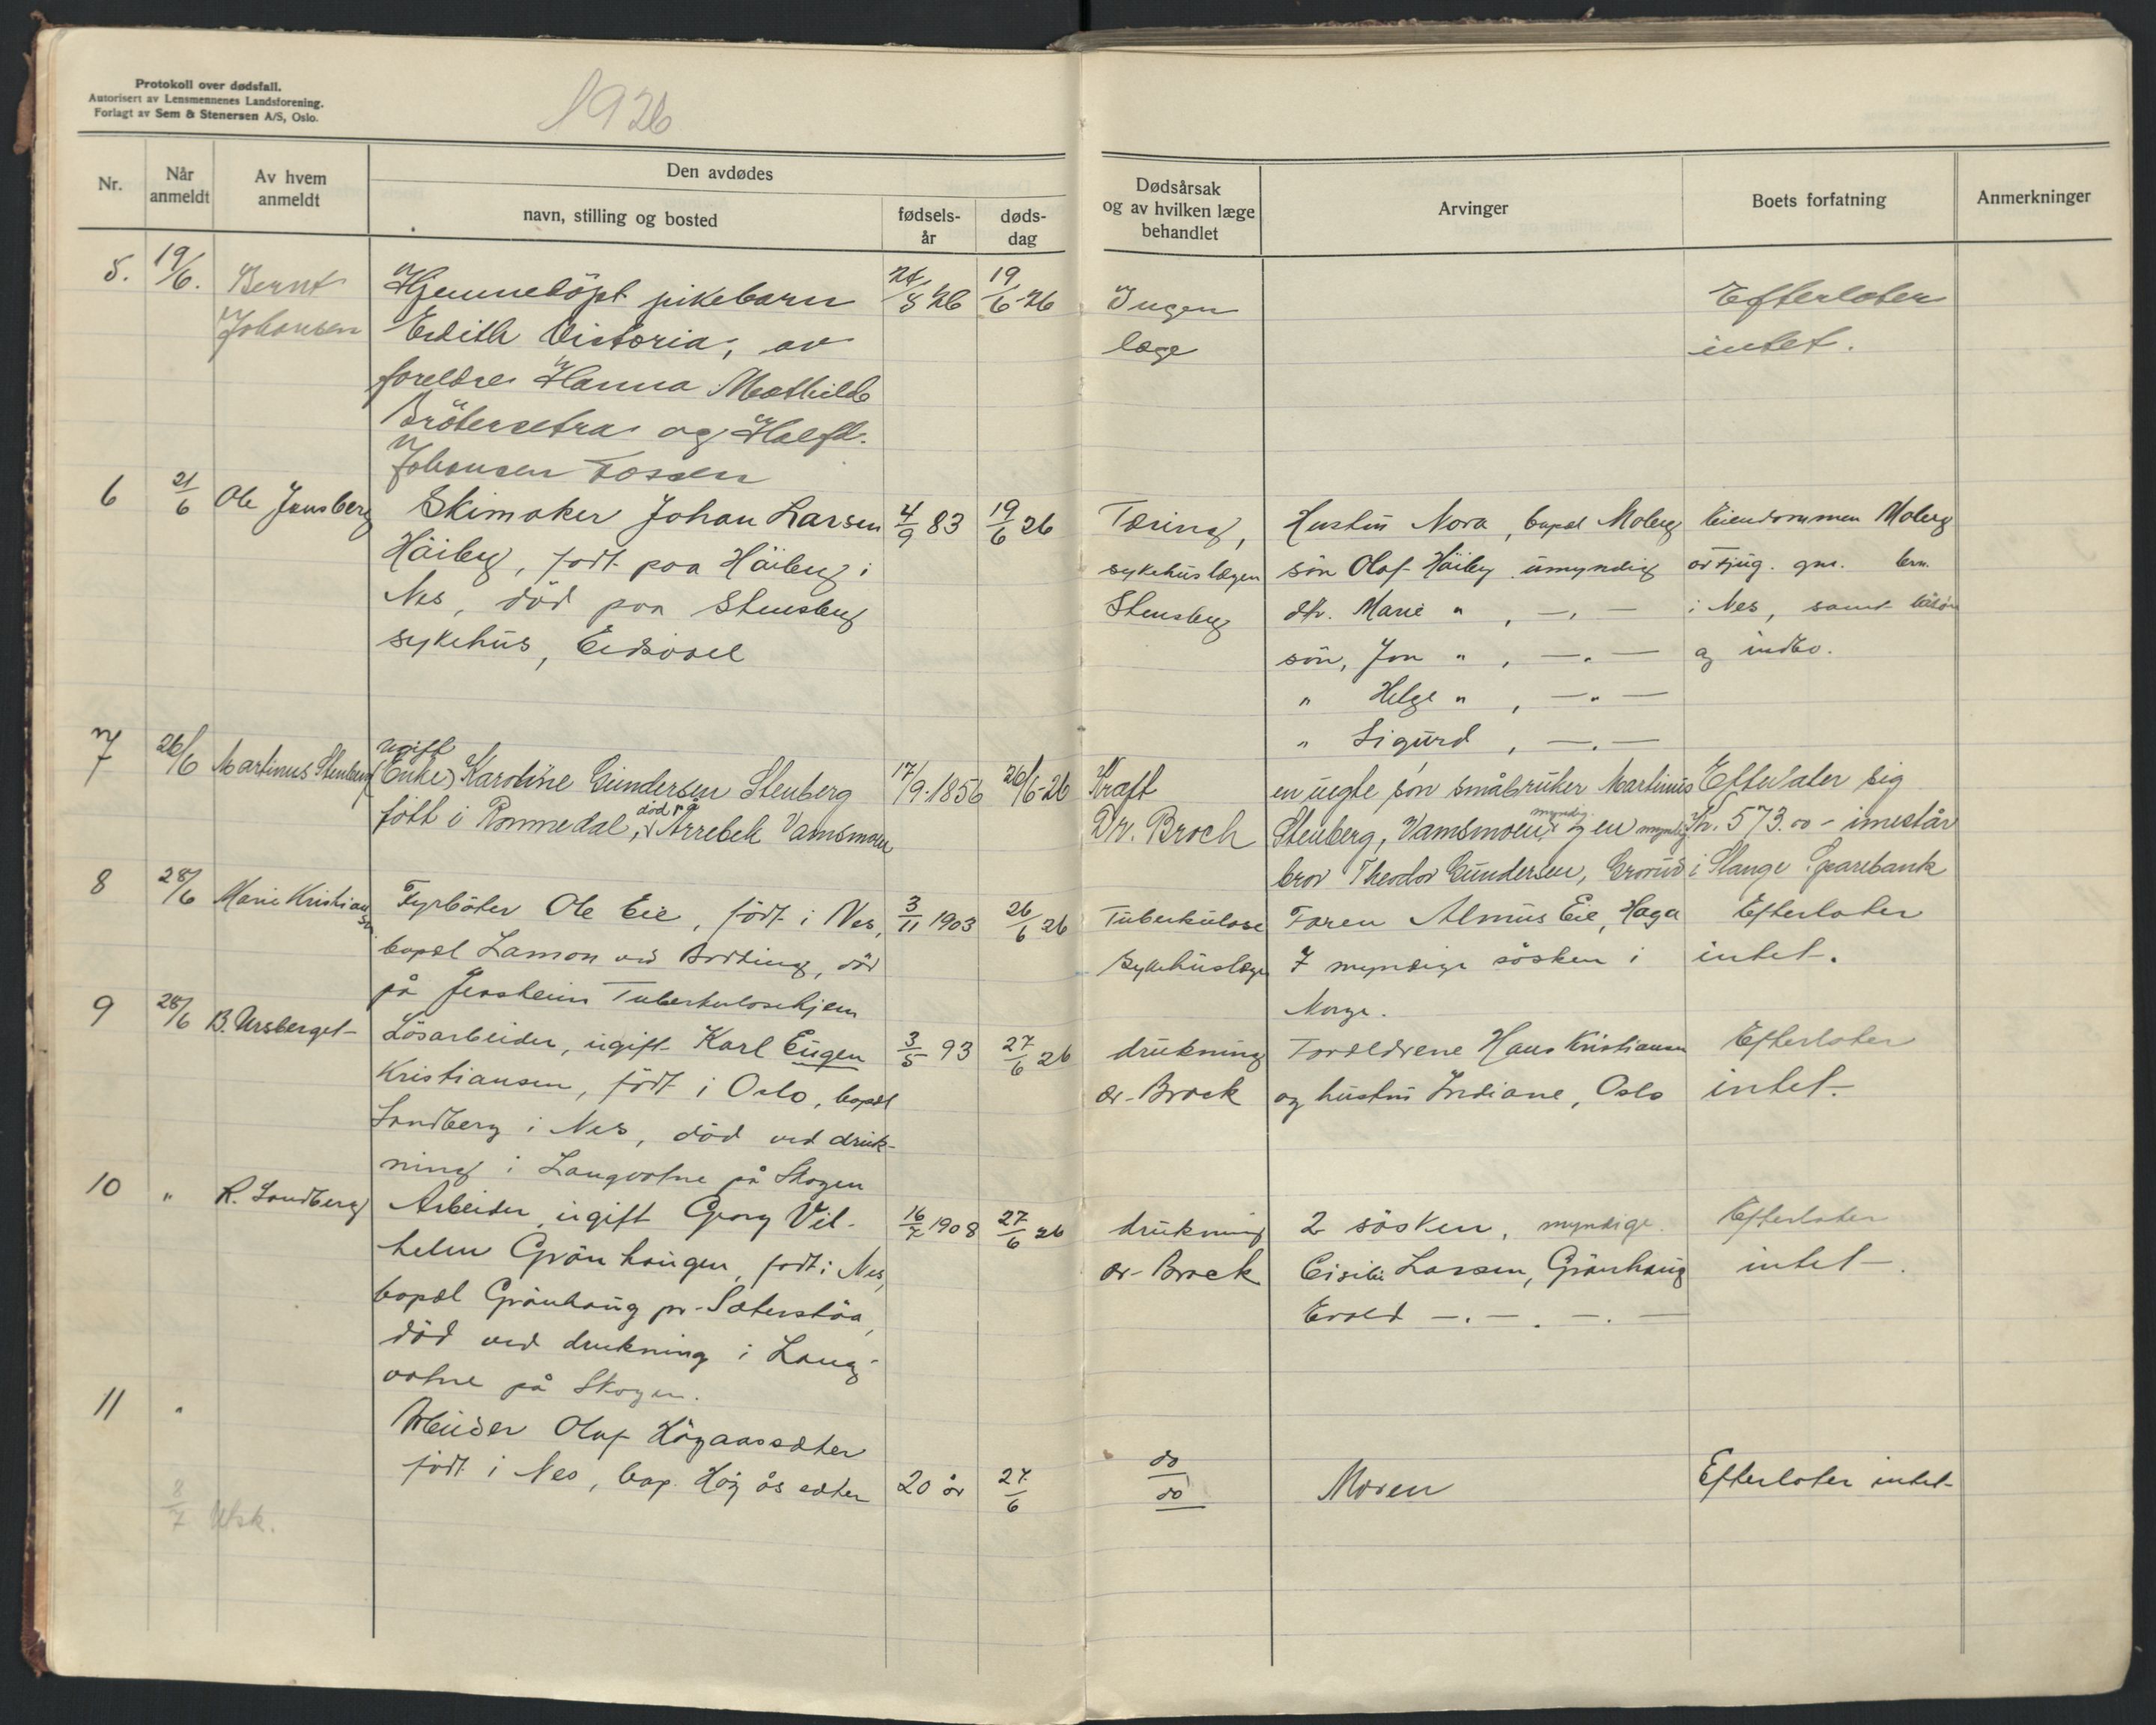 Protokoll over dødsfall.
Autorisert av Lensmennenes Landsforening.
Forlagt av Sem & Stenersen A/S, Oslo.
1926
Nr.
Når anmeldt
Av hvem anmeldt
Den avdødes
navn, stilling og bosted
fødsels-år
døds-dag
Dødsårsak og av hvilken læge behandlet
Arvinger
Boets forfatning
Anmerkninger
5. 19/6. Bernt
Johansen
Hjemmedöpt pikebarn
Edith Victoria, av
foreldre Hanna Mathilde
Bråtesetra og Halfd.
Johansen Fossen
/5 26 19/6-26
Ingen
læge
Efterlater
intet.
6 21/6 Ole Jensberg
Skimaker Johan Larsen
Häiberg, född paa Häiberg i
Nes, död paa Stensberg
sykehus, Eidsvoll
4/9 83 19/6 26
Tæring,
sykehuslægen
Stensberg
Hustru Nora, bopæl Moberg
sön Olaf Häiberg umyndig
dtr. Marie " , — " —
sön, Jon " , — " —
" Helge " , — " —
" Sigurd , — " —
Eiendommen Moberg
gnr. brn.
i Nes, samt
og indbo.
7 26/6 Martinus Stenberg
ugift
(Enke) Karoline Gundersen Stenberg
född i Rommedal, död på Arrebek Vamsmoen
17/9-1856 26/6-26
Kræft
Dr. Broch
en uegte sön småbruker Martinus
Stenberg, Vamsmoen, myndig og en myndig
bror Theodor Gundersen,
Efterlater sig
Kr. 573.00 - innestår
i Stange Sparebank
8 28/6 Marie Kristiansen
Fyrböter Ole Eie, född i Nes,
bopæl Lamon ved Årdting, död
på Jessheim Tuberkulosehjem
3/11 1903 26/6 26
Tuberkulose
Sykehuslæge
Faren Almus Eie, Haga
7 myndige sösken i
Norge.
Efterlater
intet.
9 28/6 B. Ursberget
Lösarbeider, ugift Karl Eugen
Kristiansen, född i Oslo, bopæl
Sandberg i Nes, död ved druk-
ning i Langvatne på Skogen
3/5 93 27/6 26
drukning
dr. Brock
Foreldrene Hans Kristiansen
og hustru Indiane, Oslo
Efterlater
intet.
10 " R. Sandberg
Arbeider, ugift Georg Vil-
helm Grönhaugen, född i Nes,
bopæl Grönhaug pr. Sæterstöa,
död ved drukning i Lang-
vatne på Skogen.
16/7 1908 27/6 26
drukning
dr. Brock
2 sösken, myndige.
Cisilie Larsen, Grönhaug
Evald — " — " — " —
Efterlater
intet.
11 "
Arbeider Olaf Högaassæter
född i Nes, bop. Hög ås sæter
20 år 27/6
do
do
Moren
Efterlater intet
8/7 Utsk.